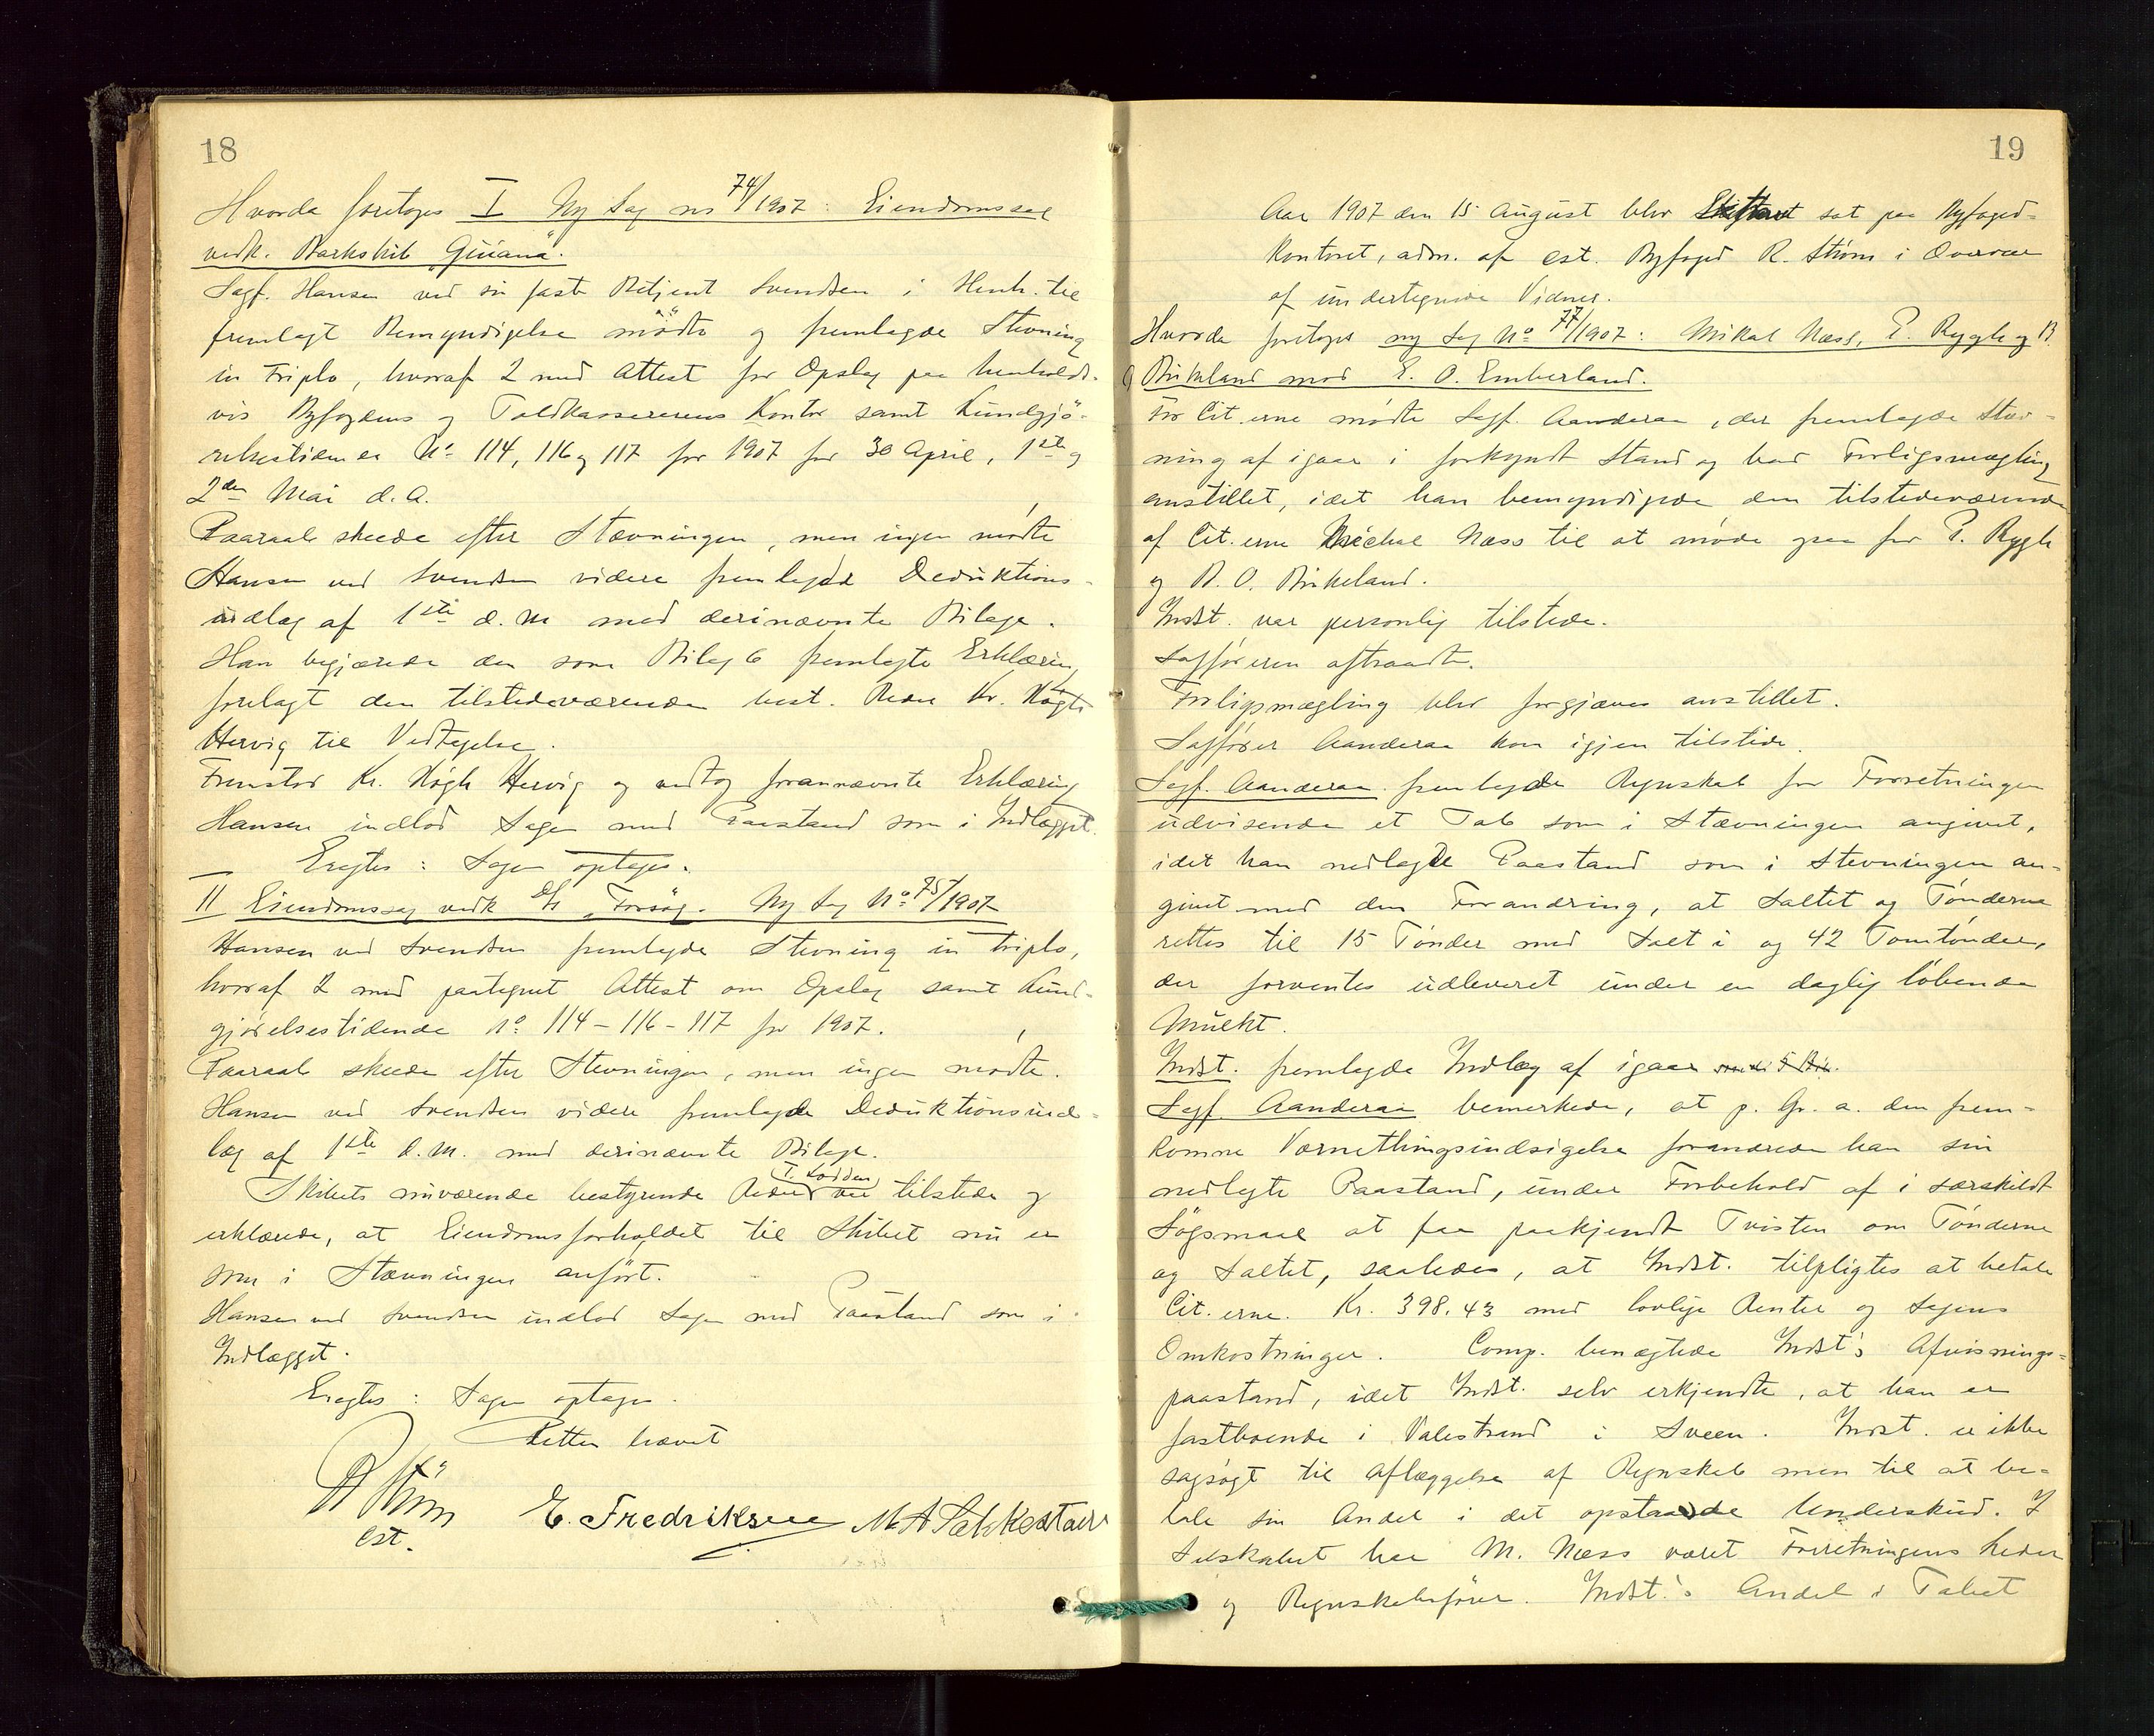 18
Hvorda foretoges I Ny Sag no 74/1907: Eiendomssag
vedk. Barkskib "Guiana".
Sagf. Hansen ved sin faste Betjent Svendsen i Henh. til
fremlagt Bemyndigelse mødte og fremlagde Stevning
in Triplo, hvoraf 2 med Attest for Opslag paa henholds-
vis Byfogdens og Toldkassererens Kontor samt Kundgjø-
relsestidende No 114, 116 og 117 for 1907 for 30 April, 1ste og
2den Mai d.A.
Paaraab skeede efter Stævningen, men ingen mødte
Hansen ved Svendsen videre fremlagde Deduktions-
indlæg af 1ste d.M med derinævnte Bilage.
Han begjærede den som Bilag 6 fremlagte Erklæring
forelagt den tilstedeværende best. Reder Kr. Høgh
Hervig til Vedtagelse.
Fremstod Kr. Høgh Hervig og vedtog forannævnte Erklæring
Hansen indlod Sagen med Paastand som i Indlægget.
Eragtes: Sagen optages.
II Eiendomssag vedk D/S "Forsøg". Ny Sag No 75/1907
Hansen ved Svendsen fremlagde Stevning in triplo,
hvoraf 2 med paategnet Attest om Opslag samt Kund-
gjørelsestidende No 114-116-117 for 1907.
Paaraab skeede efter Stevningen, men ingen mødte.
Hansen ved Svendsen videre fremlagde Deduktionsind-
læg af 1ste d.M. med derinævnte Bilage.
Skibets nuværende bestyrende Reder T. Lodden var tilstede og
erklærede, at Eiendomsforholdet til Skibet nu er
som i Stævningen anført.
Hansen ved Svendsen indlod Sagen med Paastand som i
Indlægget.
Eragtes: Sagen optages.
Retten hævet
R Strøm
cst.
E. Fredriksen M A Sakkestad
19
Aar 1907 den 15 August blev sat paa Byfoged-
kontoret, adm. af cst. Byfoged R. Strøm i Overvær
af undertegnede Vidner.
Hvorda foretoges ny Sag No 77/1907: Mikal Næss, P. Rygh og B.
O Birkeland mod E. O. Emberland.
For Cit.erne mødte Sagf. Aanderaa, der fremlagde Stæv-
ning af igaar i forkyndt Stand og bad Forligsmægling
anstillet, idet han bemyndigede den tilstedeværende
af Cit.erne Michal Næss til at møde ogsaa for P. Rygh
og B. O. Birkeland.
Indst. var personlig tilstede.
Sagføreren aftraadte.
Forligsmægling blev forgjæves anstillet.
Sagfører Aanderaa kom igjen tilstede.
Sagf. Aanderaa fremlagde Regnskab for Forretningen
udvisende et Tab som i Stævningen angivet,
idet han nedlagde Paastand som i Stevningen an-
givet med den Forandring, at Saltet og Tønderne
rettes til 15 Tønder med Salt i og 42 Tomtønder,
der forventes udleveret under en daglig løbende
Mulkt.
Indst. fremlagde Indlæg af igaar
Sagf. Aanderaa bemerkede, at p. Gr. a. den frem-
komne Værnethingsindsigelse forandrede han sin
nedlagte Paastand, under Forbehold af i særskildt
Søgsmaal at faa paakjendt Tvisten om Tønderne
og Saltet, saaledes, at Indst. tilpligtes at betale
Cit.erne. Kr. 398.43 med lovlige Renter og Sagens
Omkostninger. Comp. benægtede Indst's Afvisnings-
paastand, idet Indst. selv erkjendte, at han er
fastboende i Valestrand i Sveen. Indst. er ikke
sagsøgt til Aflæggelse af Regnskab men til at be-
tale sin Andel i det opstaaede Underskud. I
Selskabet har M. Næss været Forretningens Leder
og Regnskabsfører. Indst.'s Andel i Tabet